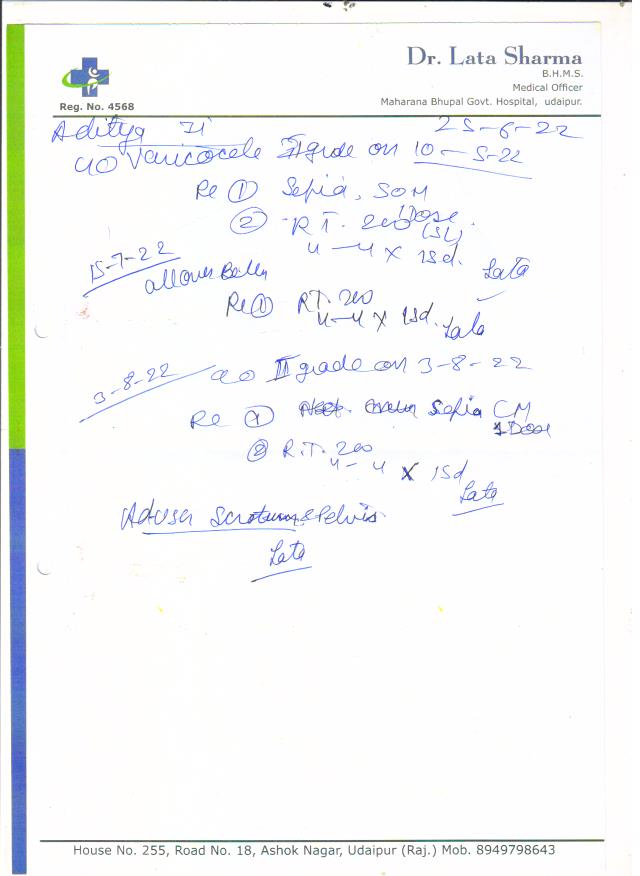 Dr. Lata Sharma
B.H.M.S.
Medical Officer
Maharana Bhupal Govt. Hospital, udaipur.
Reg. No. 4568
Aditya Ji 25-6-22
c/o Varicocele II grade on 10-5-22
Re ① Sepia, 50M
1Dose
② R.T. 200 (SL)
4-4 X 15d. Lata
15-7-22
all over Better
Re ① R.T. 200
4-4 X 15d. Lata
3-8-22 c/o II grade on 3-8-22
Re ① Sepia CM
1Dose
② R.T. 200
4-4 X 15d
Lata
Adv USG Scrotum & Pelvis
Lata
House No. 255, Road No. 18, Ashok Nagar, Udaipur (Raj.) Mob. 8949798643